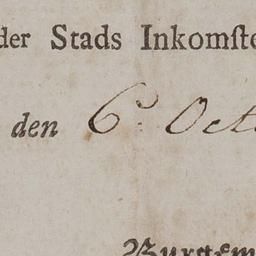 der Stads Inkomſte
den 6. Octo
Burgem